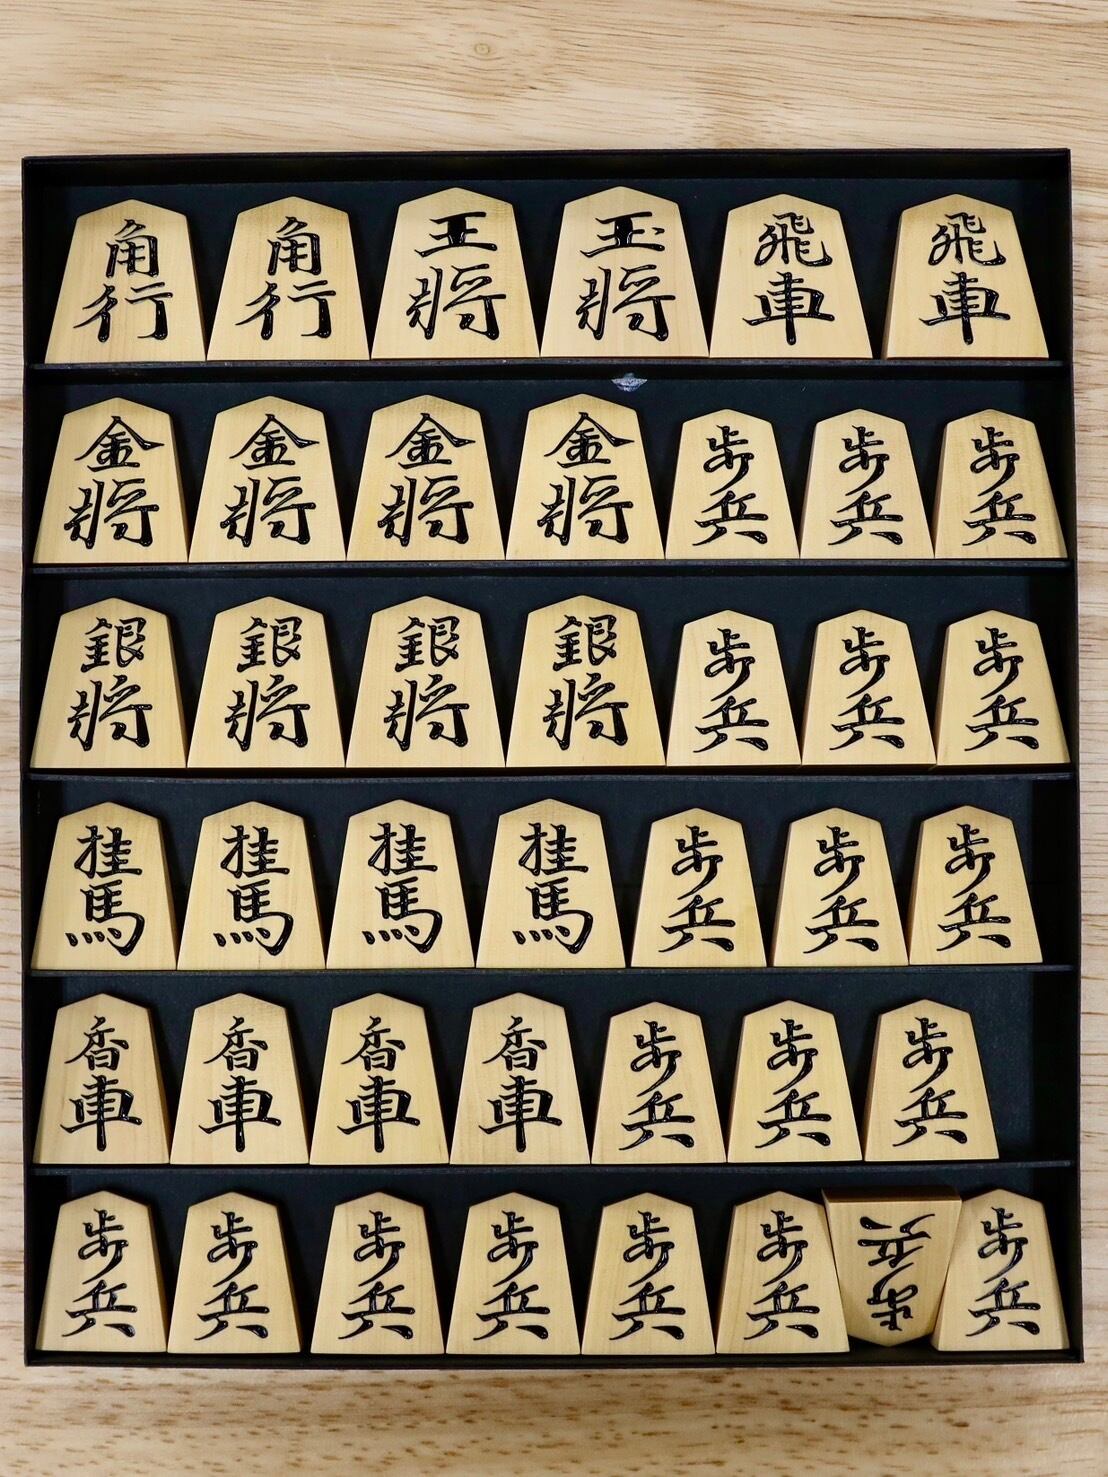 角行 角行 王将 玉将 飛車 飛車
金将 金将 金将 金将 歩兵 歩兵 歩兵
銀将 銀将 銀将 銀将 歩兵 歩兵 歩兵
桂馬 桂馬 桂馬 桂馬 歩兵 歩兵 歩兵
香車 香車 香車 香車 歩兵 歩兵 歩兵
歩兵 歩兵 歩兵 歩兵 歩兵 歩兵 歩兵 歩兵